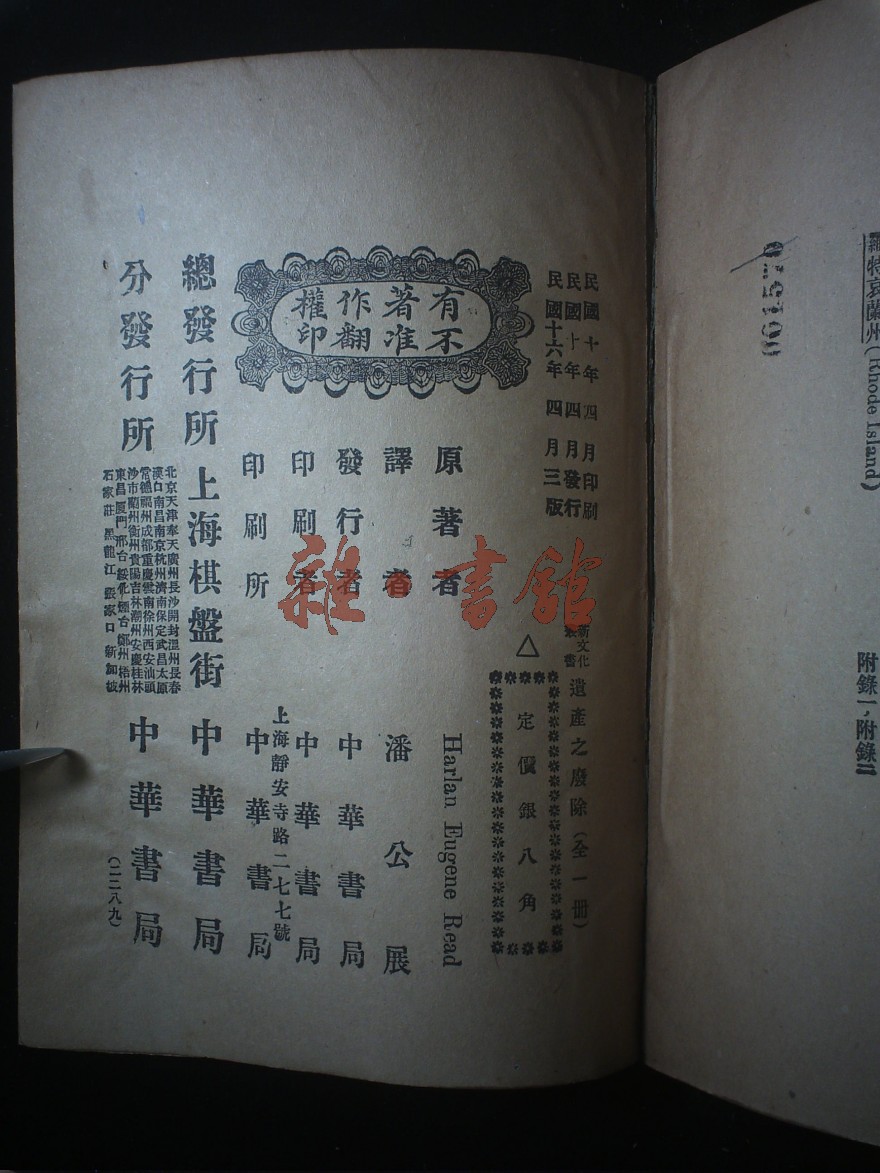 羅特哀蘭州(Rhode Island)
附錄一,附錄二
061570
民國十年四月印刷
民國十年四月發行
民國十六年四月三版
新文化叢書
遺產之廢除(全一冊)
△
定價銀八角
有著作權
不准翻印
原著者 Harlan Eugene Read
譯者 潘公展
發行者 中華書局
印刷者 中華書局
上海靜安寺路二七七號
印刷所 中華書局
總發行所 上海棋盤街 中華書局
分發行所
北京天津奉天廣州長沙開封溫州長春
漢口南昌南京杭州濟南保定武昌太原
常德福州成都重慶雲南徐州西安汕頭
沙市蘭州衡州貴陽吉林潮州安慶桂林
東昌廈門邢台綏化煙台鄭州梧州
石家莊 黑龍江 張家口 新加坡
中華書局
(二二八九)
雜·書館